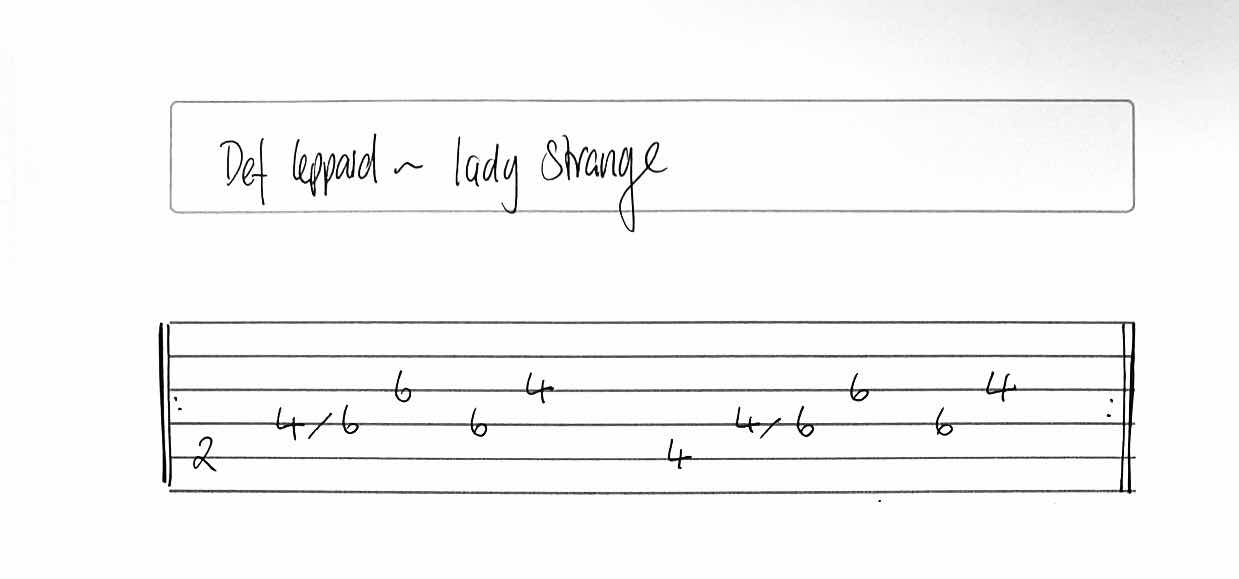 Def leppard ~ lady strange
6 4 6 4
4/6 6 4/6 6
2 4